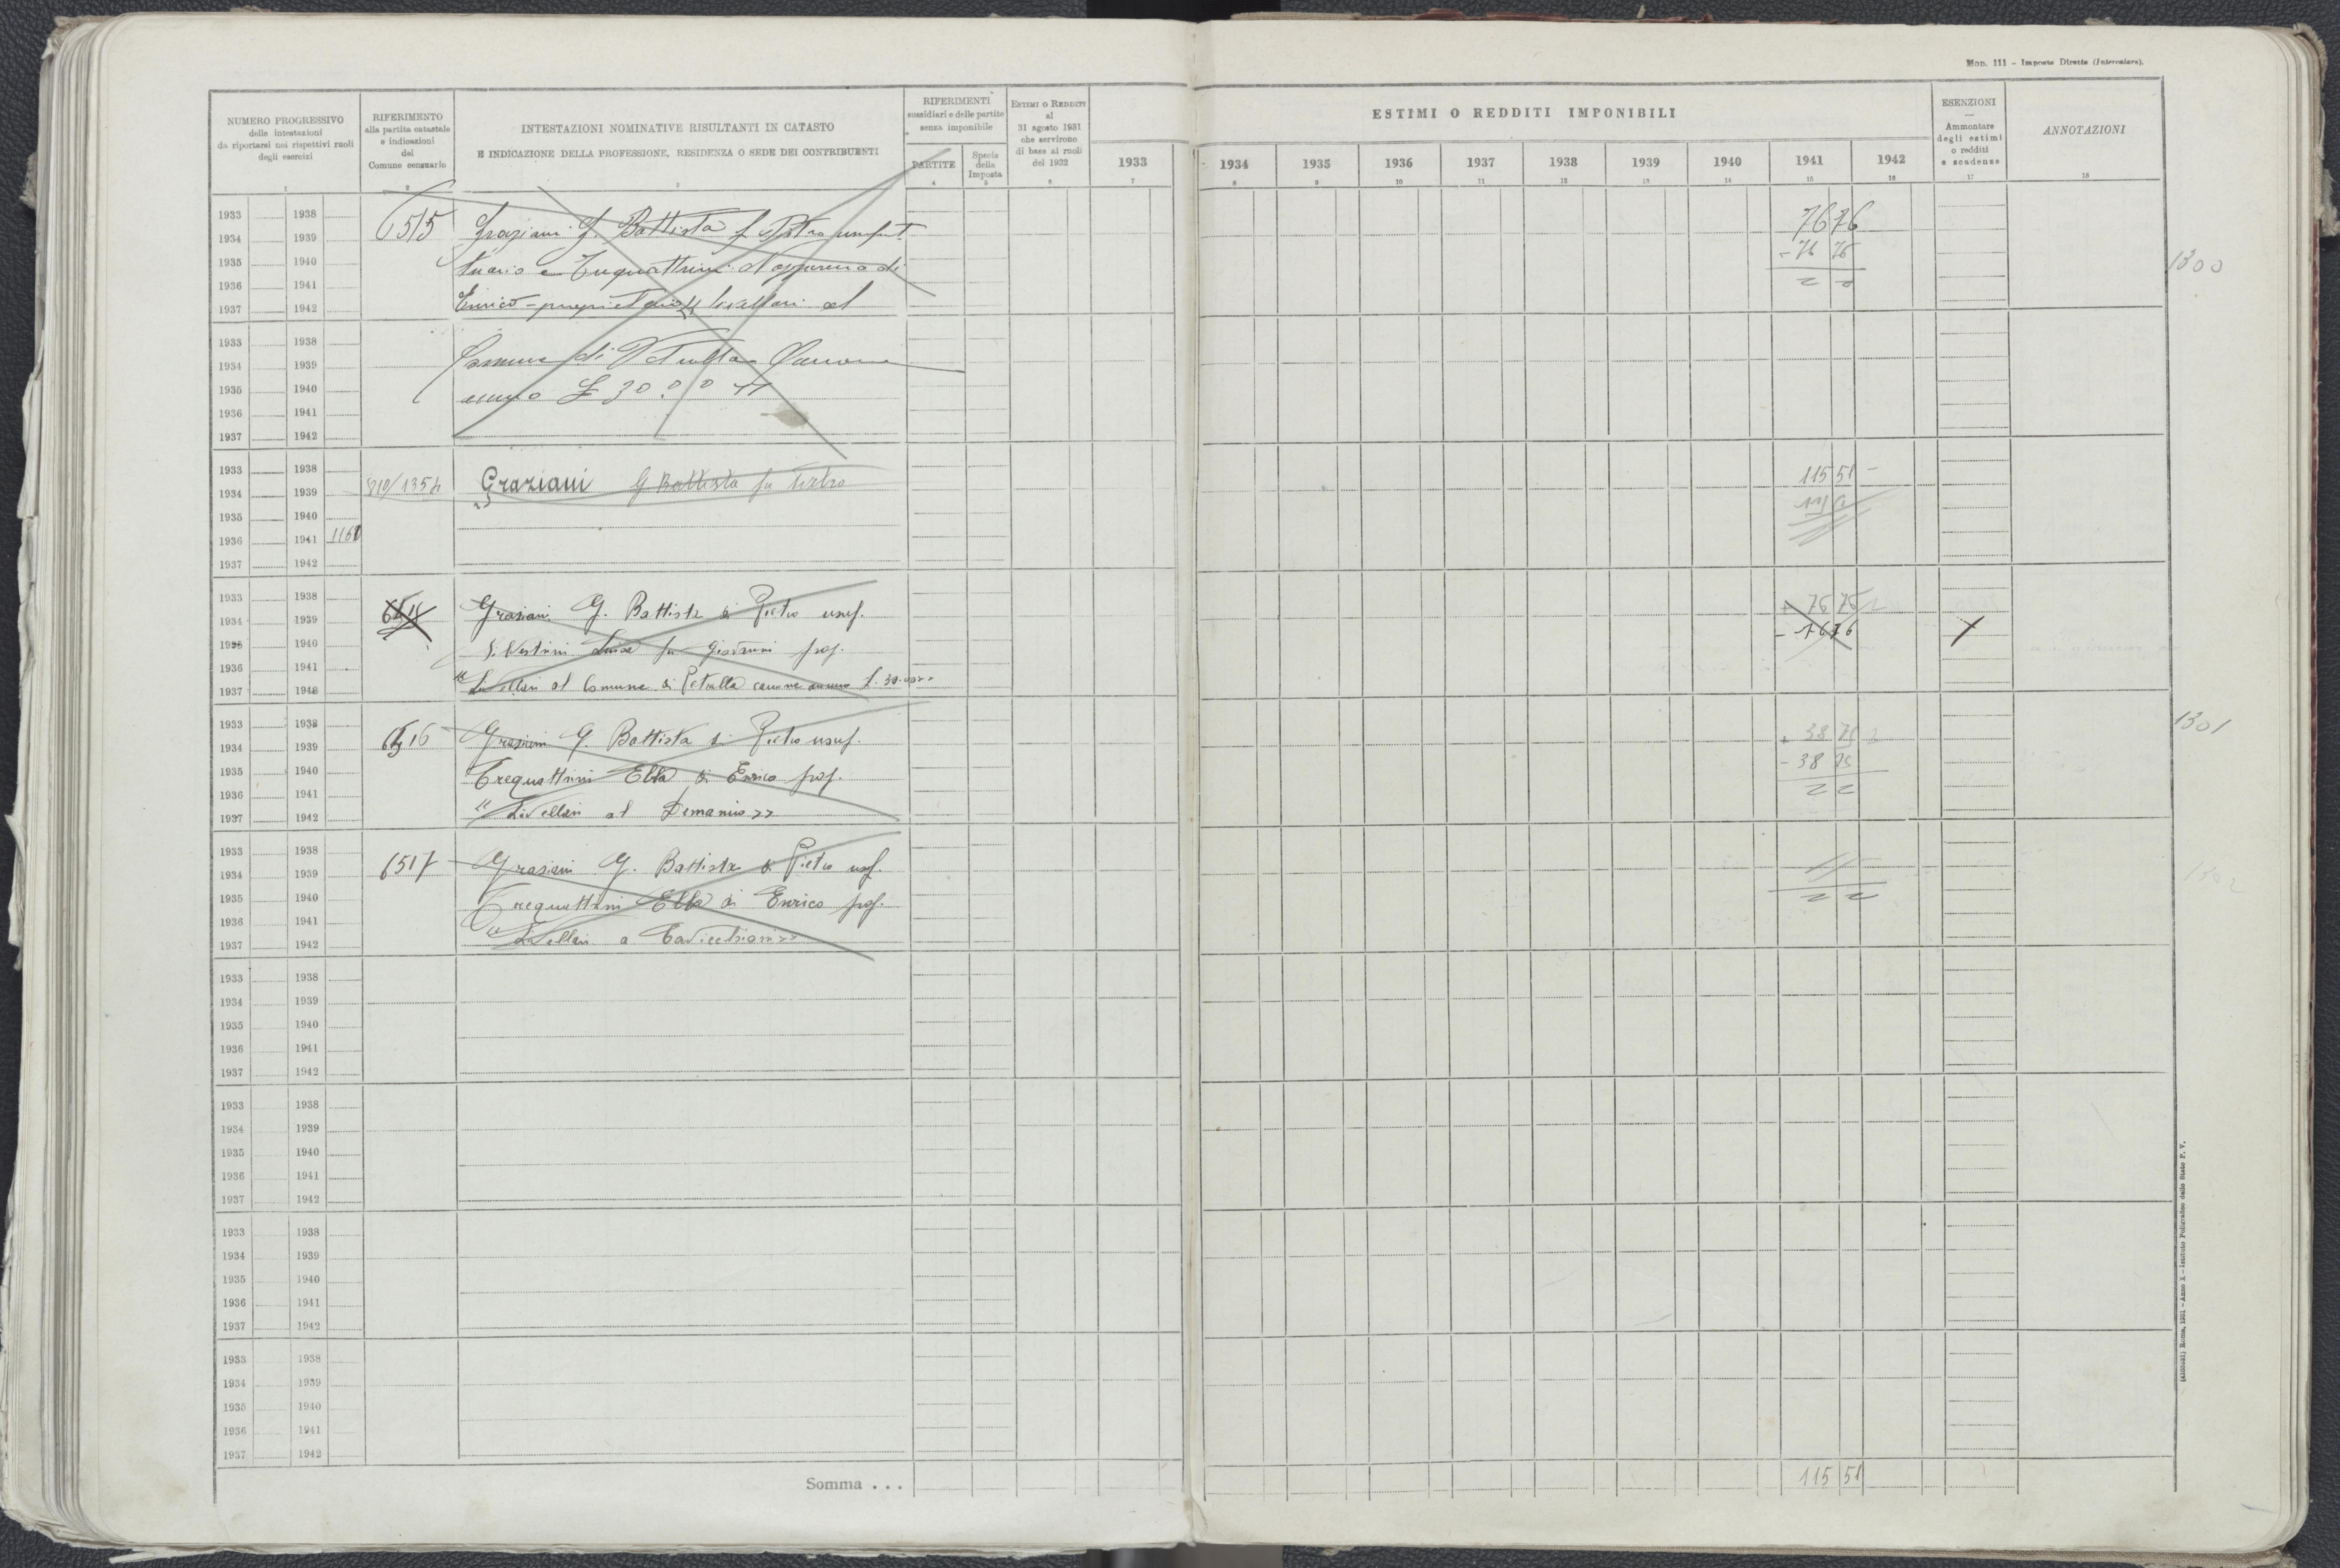 Mod. 111 - Imposte Dirette (Intercalare).
NUMERO PROGRESSIVO
delle intestazioni
da riportarsi nei rispettivi ruoli
degli esercizi
RIFERIMENTO
alla partita catastale
e indicazioni
del
Comune censuario
INTESTAZIONI NOMINATIVE RISULTANTI IN CATASTO
E INDICAZIONE DELLA PROFESSIONE, RESIDENZA O SEDE DEI CONTRIBUENTI
RIFERIMENTI
sussidiari e delle partite
senza imponibile
PARTITE
Specie
della
Imposta
ESTIMI O REDDITI
al
31 agosto 1931
che servirono
di base ai ruoli
del 1932
ESTIMI O REDDITI IMPONIBILI
1933 1934 1935 1936 1937 1938 1939 1940 1941 1942
ESENZIONI
Ammontare
degli estimi
o redditi
e scadenze
ANNOTAZIONI
1 2 3 4 5 6 7 8 9 10 11 12 13 14 15 16 17 18
1933 1938 6515 Graziani G. Battista f Pietro usufrut 76 76
1934 1939
1935 1940 tuario e Trequattrini di - 76 76 1300
1936 1941
1937 1942 Enrico - proprietario livellari al
1933 1938
1934 1939 Comune di Petrella Canone
1935 1940 annuo £ 30.00
1936 1941
1937 1942
1933 1938 115 51 -
1934 1939 810/1354 Graziani G Battista fu Pietro
1935 1940
1936 1941 1161
1937 1942
1933 1938 Graziani G. Battista di Pietro usuf. + 76 76
1934 1939 - 76 76
1935 1940 Silvestrini Luisa fu Giovanni prop.
1936 1941
1937 1942 "Livellari al Comune di Petrella canone annuo £. 30.00"
1933 1938 1301
1934 1939 6516 Graziani G. Battista di Pietro usuf. + 38 75
1935 1940 Trequattrini Elba di Enrico prop. - 38 75
1936 1941
1937 1942 "Livellari al Demanio"
1933 1938
1934 1939 6517 Graziani G. Battista di Pietro usuf. 1302
1935 1940 Trequattrini Elba di Enrico prop.
1936 1941
1937 1942 "Livellari a
1933 1938
1934 1939
1935 1940
1936 1941
1937 1942
1933 1938
1934 1939
1935 1940
1936 1941
1937 1942
1933 1938
1934 1939
1935 1940
1936 1941
1937 1942
1933 1938
1934 1939
1935 1940
1936 1941
1937 1942
Somma . . . 115 51
Roma, 1931 - Anno X - Istituto Poligrafico dello Stato P. V.